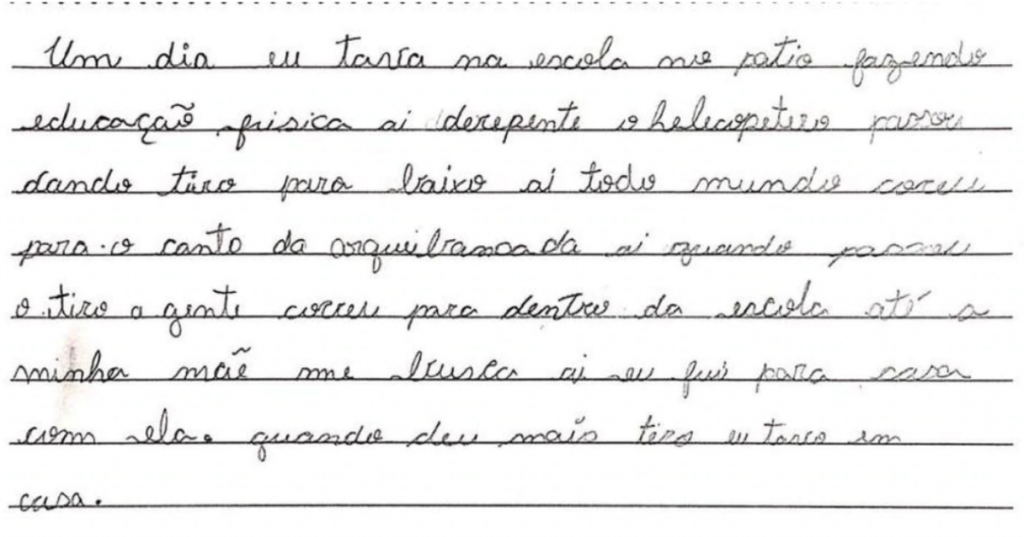 Um dia eu tava na escola no patio fazendo
educação frisica ai derepente o helecopetero passou
dando tiro para baixo ai todo mundo correu
para o canto da arquibamcada ai quando passou
o tiro a gente correu para dentro da escola até a
minha mãe me busca ai eu fui para casa
com ela. quando deu mais tiro eu tava em
casa.